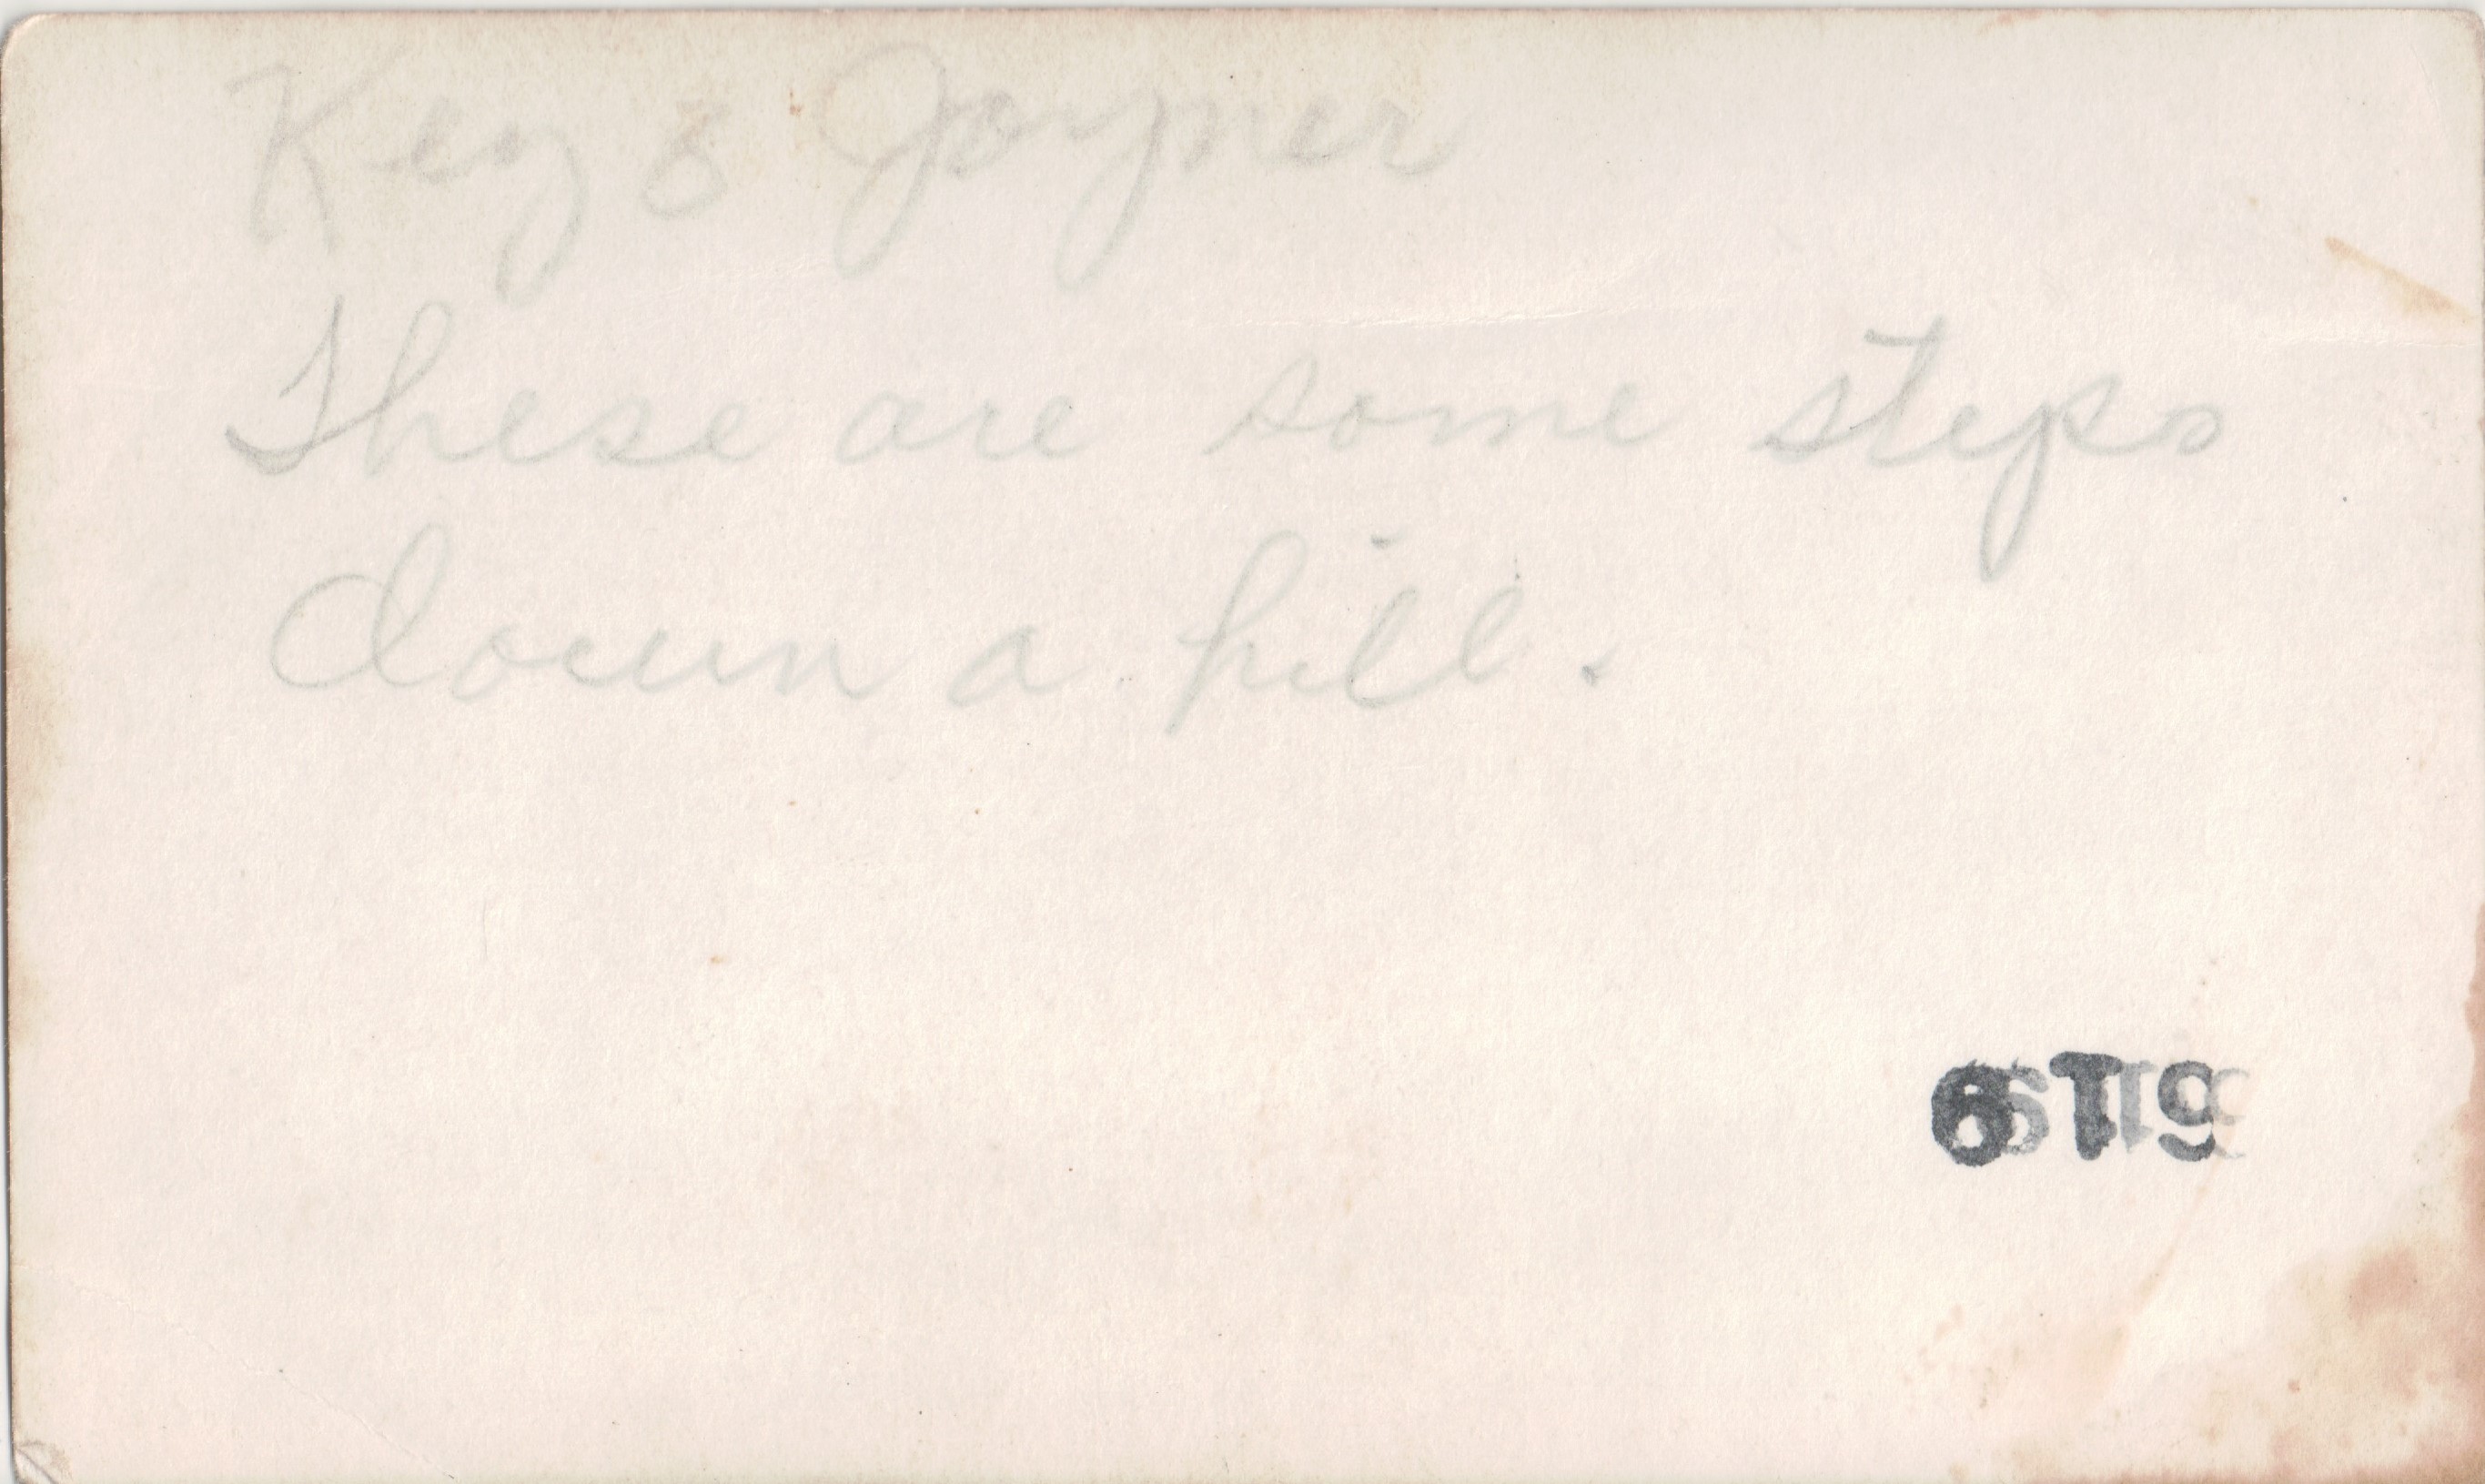 Key & Joyner
These are some steps
down a hill.